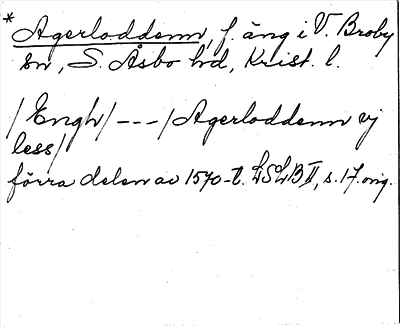 * Agerloddenn, f. äng i V. Broby
sn, S. Åsbo hd, Krist. l.
/Engh/ - - - /Agerloddenn vj
less/
förra delen av 1570-t. LSLB II, s. 17. orig.